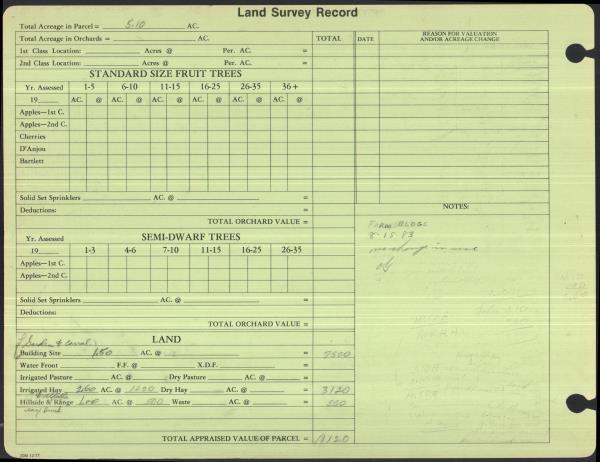 Land Survey Record
Total Acreage in Parcel = 5.10 AC.
Total Acreage in Orchards = AC. TOTAL DATE REASON FOR VALUATION AND/OR ACREAGE CHANGE
1st Class Location: Acres @ Per. AC. =
2nd Class Location: Acres @ Per. AC. =
STANDARD SIZE FRUIT TREES
Yr. Assessed 1-5 6-10 11-15 16-25 26-35 36+
19 AC. @ AC. @ AC. @ AC. @ AC. @ AC. @
Apples—1st C.
Apples—2nd C.
Cherries
D'Anjou
Bartlett
Solid Set Sprinklers AC. @ =
Deductions: =
TOTAL ORCHARD VALUE =
NOTES:
FARM BLDGS
8-15-83
no change in use
SEMI-DWARF TREES
Yr. Assessed 1-3 4-6 7-10 11-15 16-25 26-35
19 AC. @ AC. @ AC. @ AC. @ AC. @ AC. @
Apples—1st C.
Apples—2nd C.
Solid Set Sprinklers AC. @ =
Deductions: =
TOTAL ORCHARD VALUE =
LAND
Garden & Corral
Building Site 1.50 AC. @ = 7500
Water Front F.F. @ X.D.F. =
Irrigated Pasture AC. @ Dry Pasture AC. @ =
Irrigated Hay 2.60 AC. @ 1200 Dry Hay AC. @ = 3120
Hillside & Range 1.00 AC. @ 500 Waste AC. @ = 500
TOTAL APPRAISED VALUE OF PARCEL = 11120